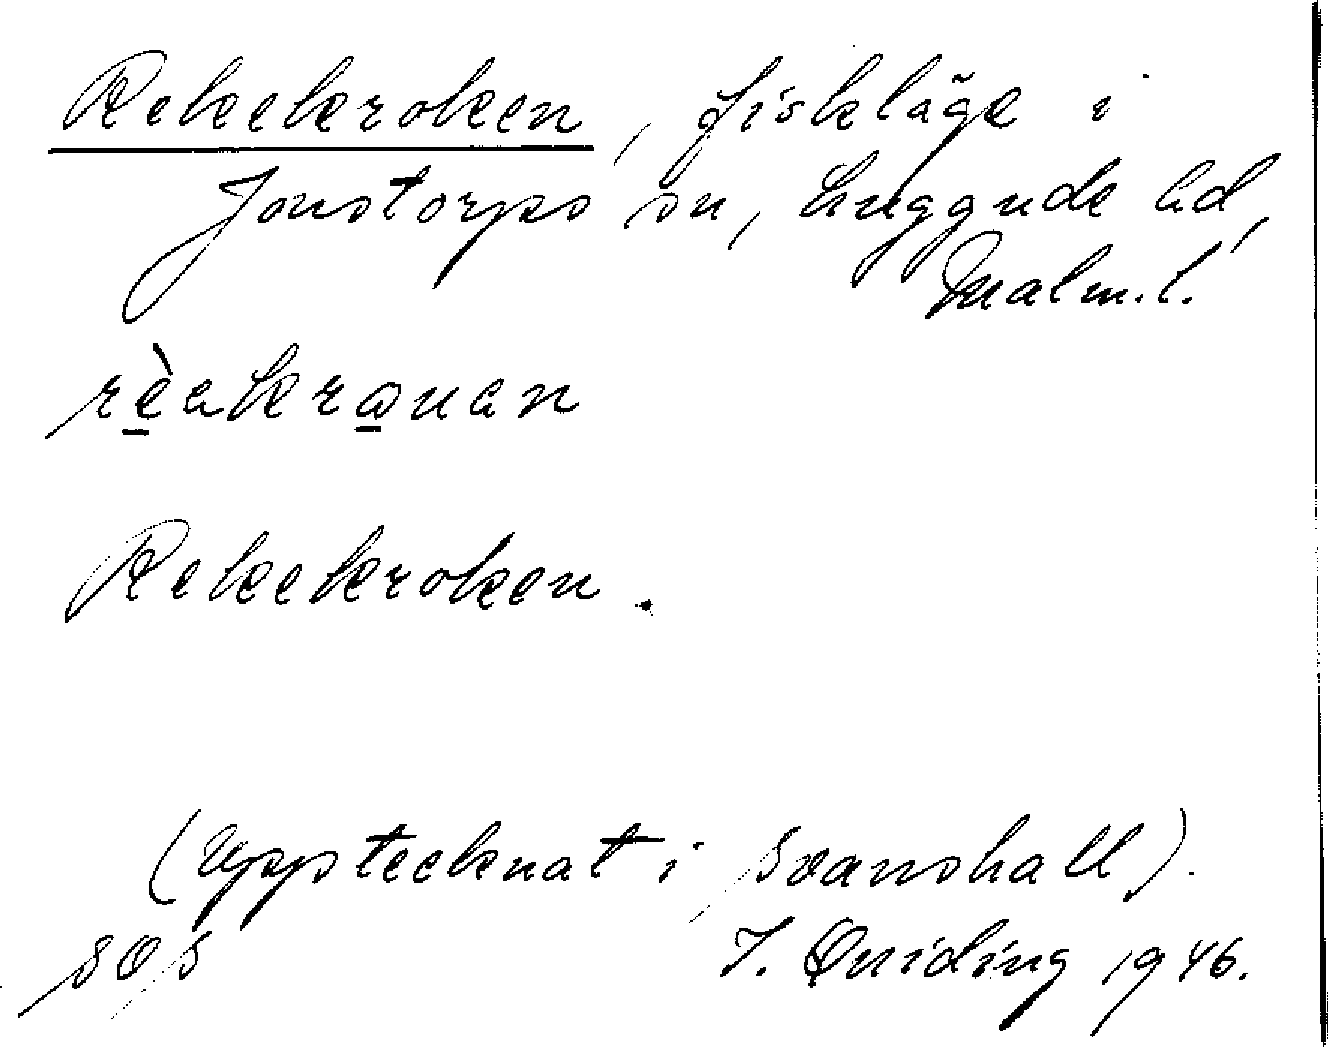 Rekekroken, fiskläge i
Jonstorps sn, Luggude hd,
Malm.l.
rèakrauan
Rekekroken.
(Upptecknat i Svanshall).
SOS I. Quiding 1946.